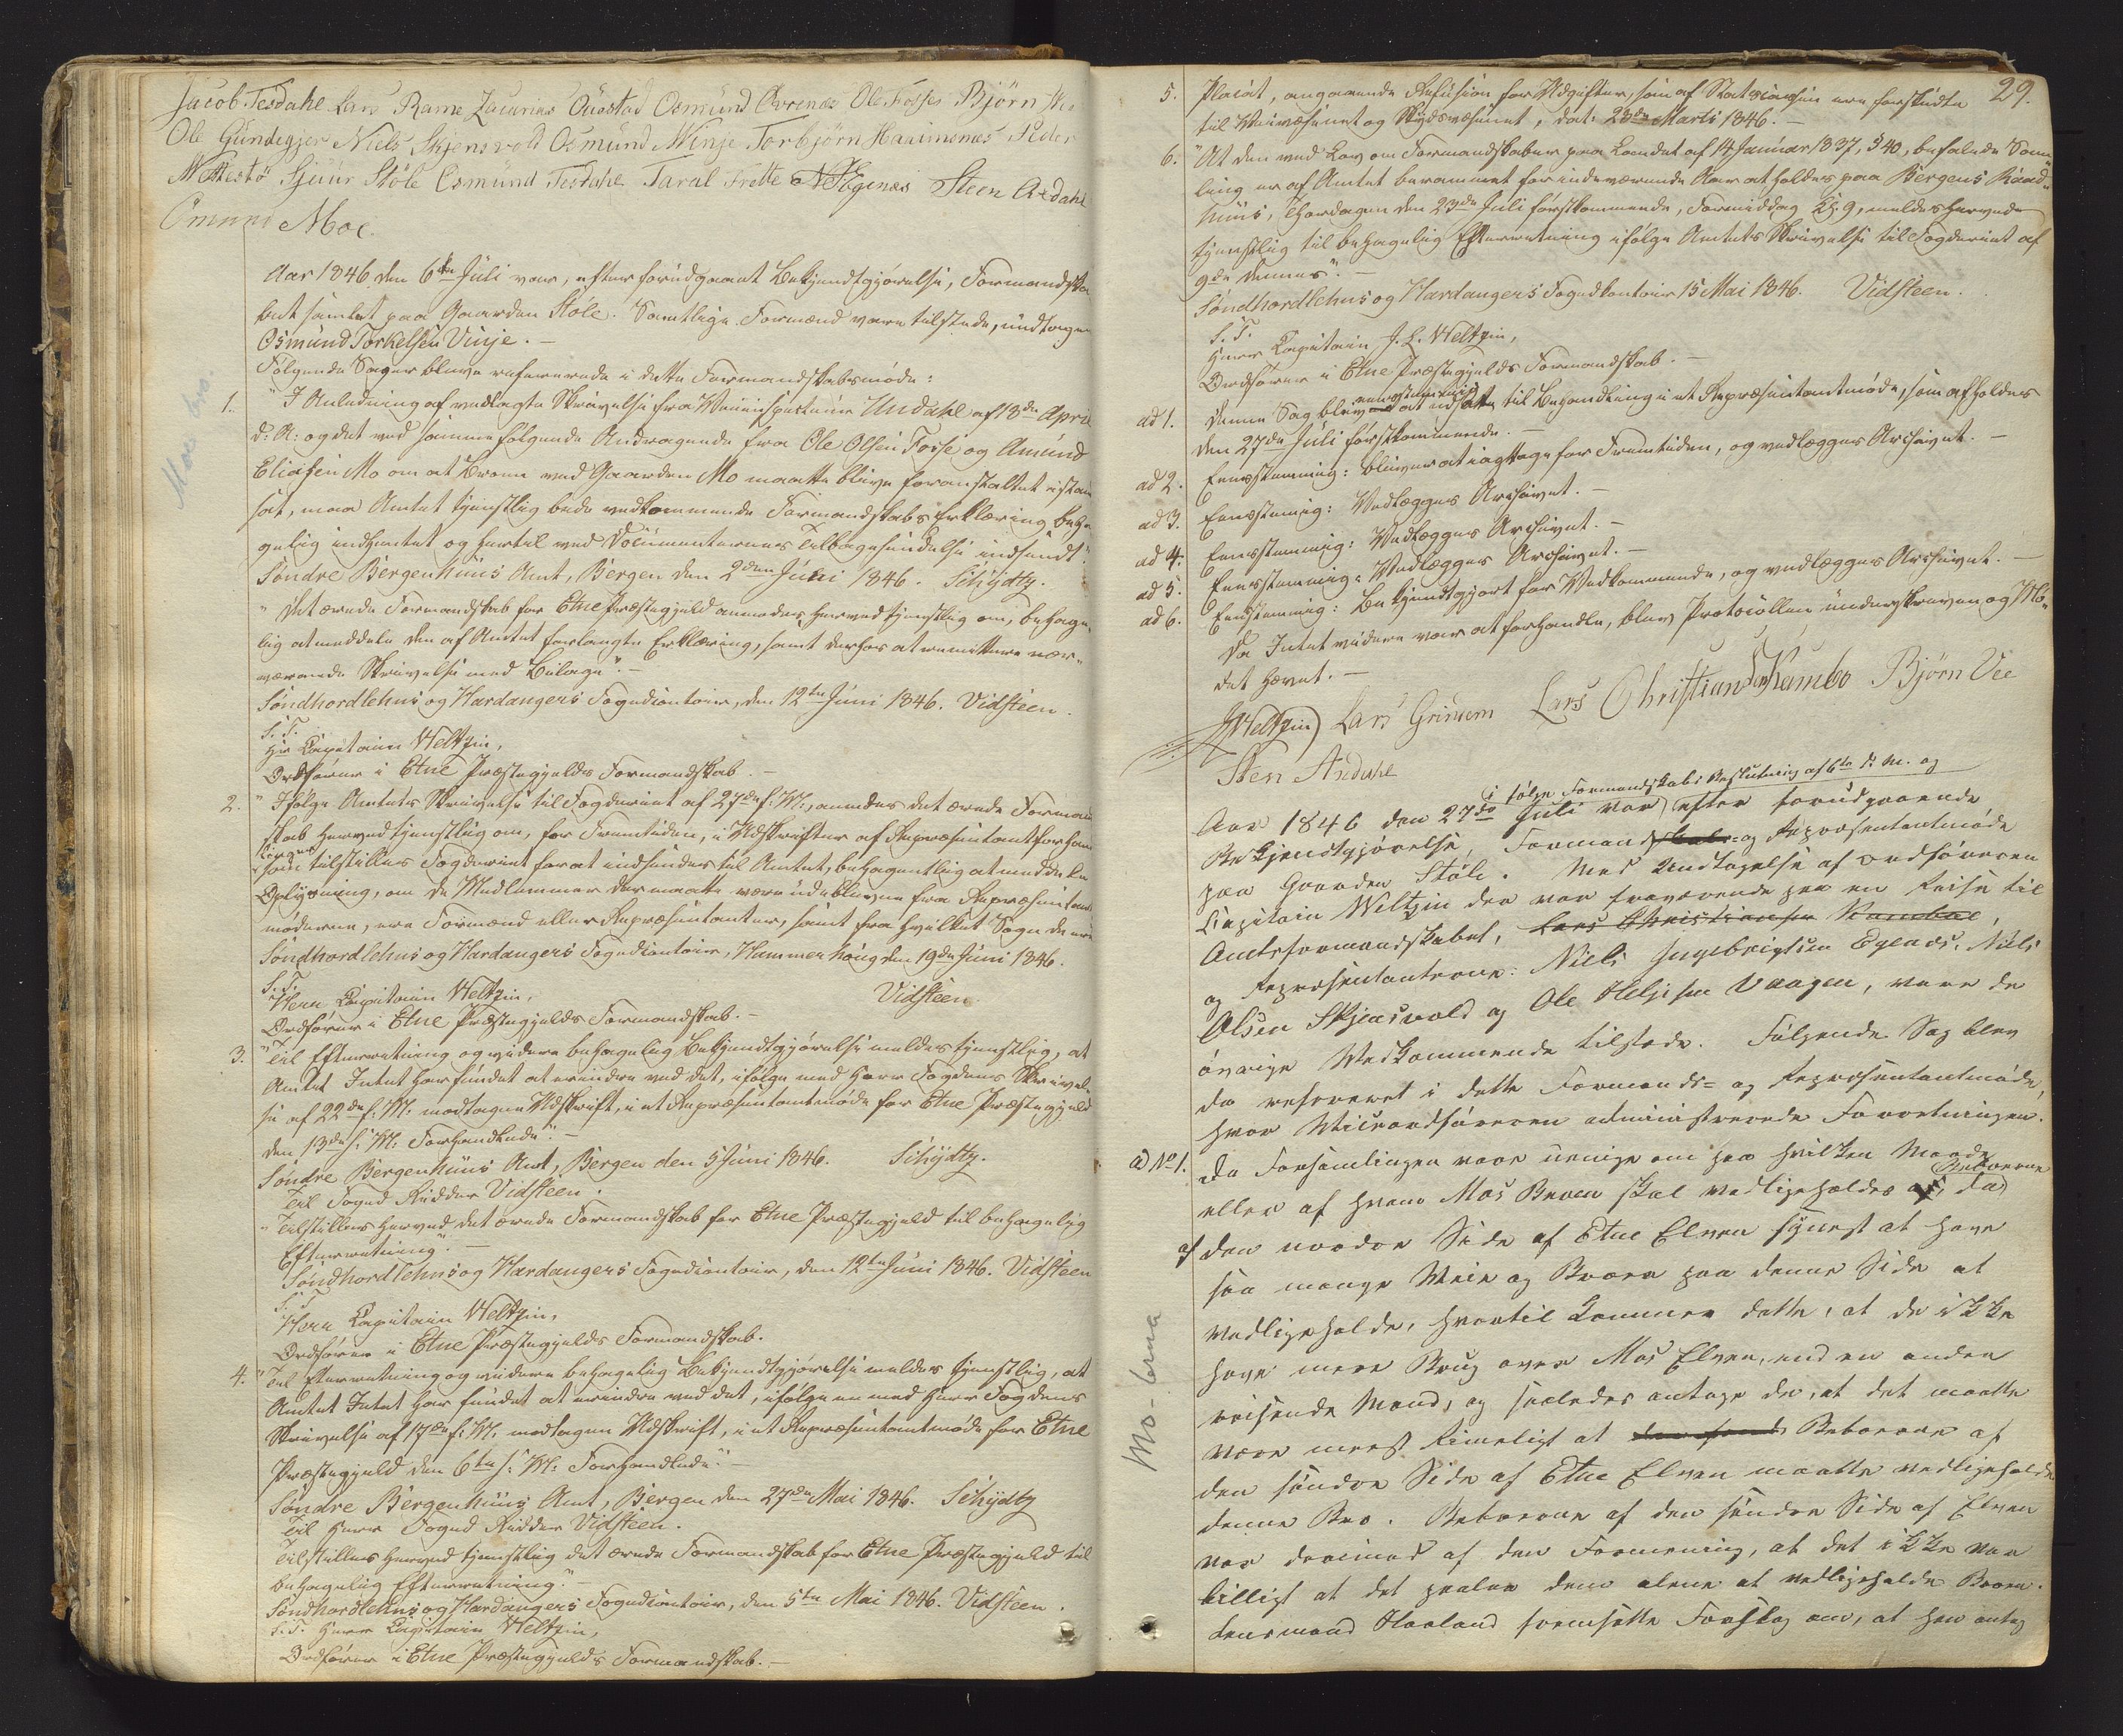 Jacob Tesdahl Lars Rame Zacarias Qvestad Osmund Övrenæs Ole Fosse Björn
Ole Gundegjer Niels Skjensvold Osmund Winje Torbjörn Hanimonæs Peder
Mettestö Sjuur Stöle Osmund Tesdahl Taral Frette N Egenæs Steen Axdahl
Omund Moe.
Aar 1846 den 6te Juli var, efter forudgaaet Bekjendtgjörelse, Formandska
bet samlet paa Gaarden Stöle. Samtlige Formænd vare tilstede, undtagen
Osmund Torkelsen Vinje. -
Fölgende Sager bleve refererede i dette Formandskabsmöde:
1. "I Anledning af vedlagte Skrivelse fra Veiinspecteur Undahl af 18de April
d: A: og det ved samme fölgende Andragende fra Ole Olsen Fosse og Amund
Eliasen Mo om at Broen ved Gaarden Mo maatte blive foranstaltet istand
sat, maa Amtet tjenstlig bede vedkommende Formandskabs Erklæring beha
gelig indhentet og hertil ved Documenternes Tilbagesendelse indsendt."
Söndre Bergenhuus Amt, Bergen den 2den Juni 1846. Schydtz.
"Det ærede Formandskab for Etne Præstegjeld anmodes herved tjenstlig om, behage-
lig at meddele den af Amtet forlangte Erklæring, samt derhos at remittere nær-
værende Skrivelse med Bilage". -
Söndhordlehns og Hardangers Fogedcontoir, den 12te Juni 1846. Vidsteen.
S. T.
Hr Capitain Weltzin,
Ordförer i Etne Præstegjelds Formandskab. -
2. "Ifölge Amtets Skrivelse til Fogderiet af 27de f: M:, anmodes det ærede Formand
skab herved tjenstlig om, for Fremtiden, i Udskrifter af Repræsentantforhand
linger
som tilstilles Fogderiet for at indsendes til Amtet, behagentlig at meddele
Oplysning, om de Medlemmer der maatte være udeblevne fra Repræsentant
möderne, ere Formænd eller Repræsentanter, samt fra hvilket Sogn de ere
Söndhordlehns og Hardangers Fogedcontoir, Hammerhoug den 19de Juni 1846.
S. T. Vidsteen
Herr Capitain Weltzin,
Ordförer i Etne Præstegjelds Formandskab. -
3. "Til Efterretning og videre behagelig Bekjendtgjörelse meldes tjenstlig, at
Amtet Intet har fundet at erindre ved det, ifölge med Herr Fogdens Skrivel
se af 22de f: M: modtagen Udskrift, i et Repræsentantmöde for Etne Præstegjeld
den 13de f: M: Forhandlede". -
Söndre Bergenhuus Amt, Bergen den 5 Juni 1846. Schydtz.
Til Foged Ridder Vidsteen.
"Tilstilles herved det ærede Formandskab for Etne Præstegjeld til behagelig
Efterretning". -
Söndhordlehns og Hardangers Fogedcontoir, den 12te Juni 1846. Vidsteen
S. T.
Herr Capitain Weltzin,
Ordförer i Etne Præstegjelds Formandskab.
4. "Til Efterretning og videre behagelig Bekjendtgjörelse meldes tjenstlig, at
Amtet Intet har fundet at erindre ved det, ifölge en med Herr Fogdens
Skrivelse af 17de f: M: modtagen Udskrift, i et Repræsentantmöde for Etne
Præstegjeld den 6te f: M: Forhandlede". -
Söndre Bergenhuus Amt, Bergen den 27de Mai 1846. Schydtz
Til Herr Foged Ridder Vidsteen.
Tilstilles herved tjenstlig det ærede Formandskab for Etne Præstegjeld til
behagelig Efterretning". -
Söndhordlehns og Hardangers Fogedcontoir, den 5te Mai 1846. Vidsteen.
S. T. Herr Capitain Weltzin,
Ordförer i Etne Præstegjelds Formandskab. -
Moe bro.
29.
5. Placat, angaaende Refusion for Udgifter, som af Statscassen ere forskudte
til Veivæsenet og Skydsvæsenet, dat: 23de Marts 1846. -
6. "At den ved Lov om Formandskaber paa Landet af 14 Januar 1837, § 40, befalede Sam-
ling er af Amtet berammet for indeværende Aar at holdes paa Bergens Raad-
huus, Thorsdagen den 23de Juli förstkommende, Formiddag Kl. 9, meldes herved
tjenstlig til behagelig Efterretning ifölge Amtets Skrivelse til Fogderiet af
9de dennes". -
Söndhordlehns og Hardangers Fogedkontoir 15 Mai 1846. Vidsteen.
S. T.
Herr Capitain J. L. Weltzin,
Ordförer i Etne Præstegjelds Formandskab. -
ad 1. Denne Sag blev eenstemmig at udsætte til Behandling i et Repræsentantmöde, som afholdes
den 27de Juli förstkommende. -
ad 2. Eenstemmig: bliver at iagttage for Fremtiden, og vedlægges Archivet. -
ad 3. Eenstemmig: Vedlægges Archivet. -
ad 4. Eenstemmig: Vedlægges Archivet. -
ad 5. Eenstemmig: Vedlægges Archivet. -
ad 6. Eenstemmig: Bekjendtgjort for Vedkommende, og vedlægges Archivet. -
Da Intet videre var at forhandle, blev Protocollen underskreven og Mö-
det hævet. -
JWeltzin Lars Grinem Lars Christiansen Kambo Björn Vee
Sten Axdahl
i fölge Formandskabs Beslutning af 6te d: M. og
Aar 1846 den 27de Juli var efter forudgaaende
Bekjendtgjörelse, Formandskabs- og Repræsentantmöde
paa Gaarden Stöle. Med Undtagelse af Ordföreren
Capitain Weltzin der var fraværende paa en Reise til
Amtsformandskabet, Lars Christiansen Kamboe,
og Repræsentanterne: Niels Ingebrigtsen Egenæs, Niels
Olsen Skjensvold og Ole Heljesen Vaagen, vare de
övrige Vedkommende tilstede. Fölgende Sag blev
da refereret i dette Formands- og Repræsentantmöde,
hvor Viceordföreren administrerede Forretningen.
ad No 1. Da Forsamlingen vare uenige om paa hvilken Maade
eller af hvem Mos Broen skal vedligeholdes, da Beboerne
af den nordre Side af Etne Elven synest at have
saa mange Veie og Broer paa denne Side at
vedligeholde, hvortil kommer dette, at de ikke
have mere Brug over Mos Elven, end en anden
reisende Mand, og saaledes antage de, at det maatte
være meest Rimeligt at Beboerne af
den söndre Side af Etne Elven maatte vedligeholde
denne Bro. Beboerne af den söndre Side af Elven
var derimod af den Formening, at det ikke var
billigt at det paalaa dem alene at vedligeholde Broen.
Lensmand Haaland fremsatte Forslag om, at han antog
Mo-brua